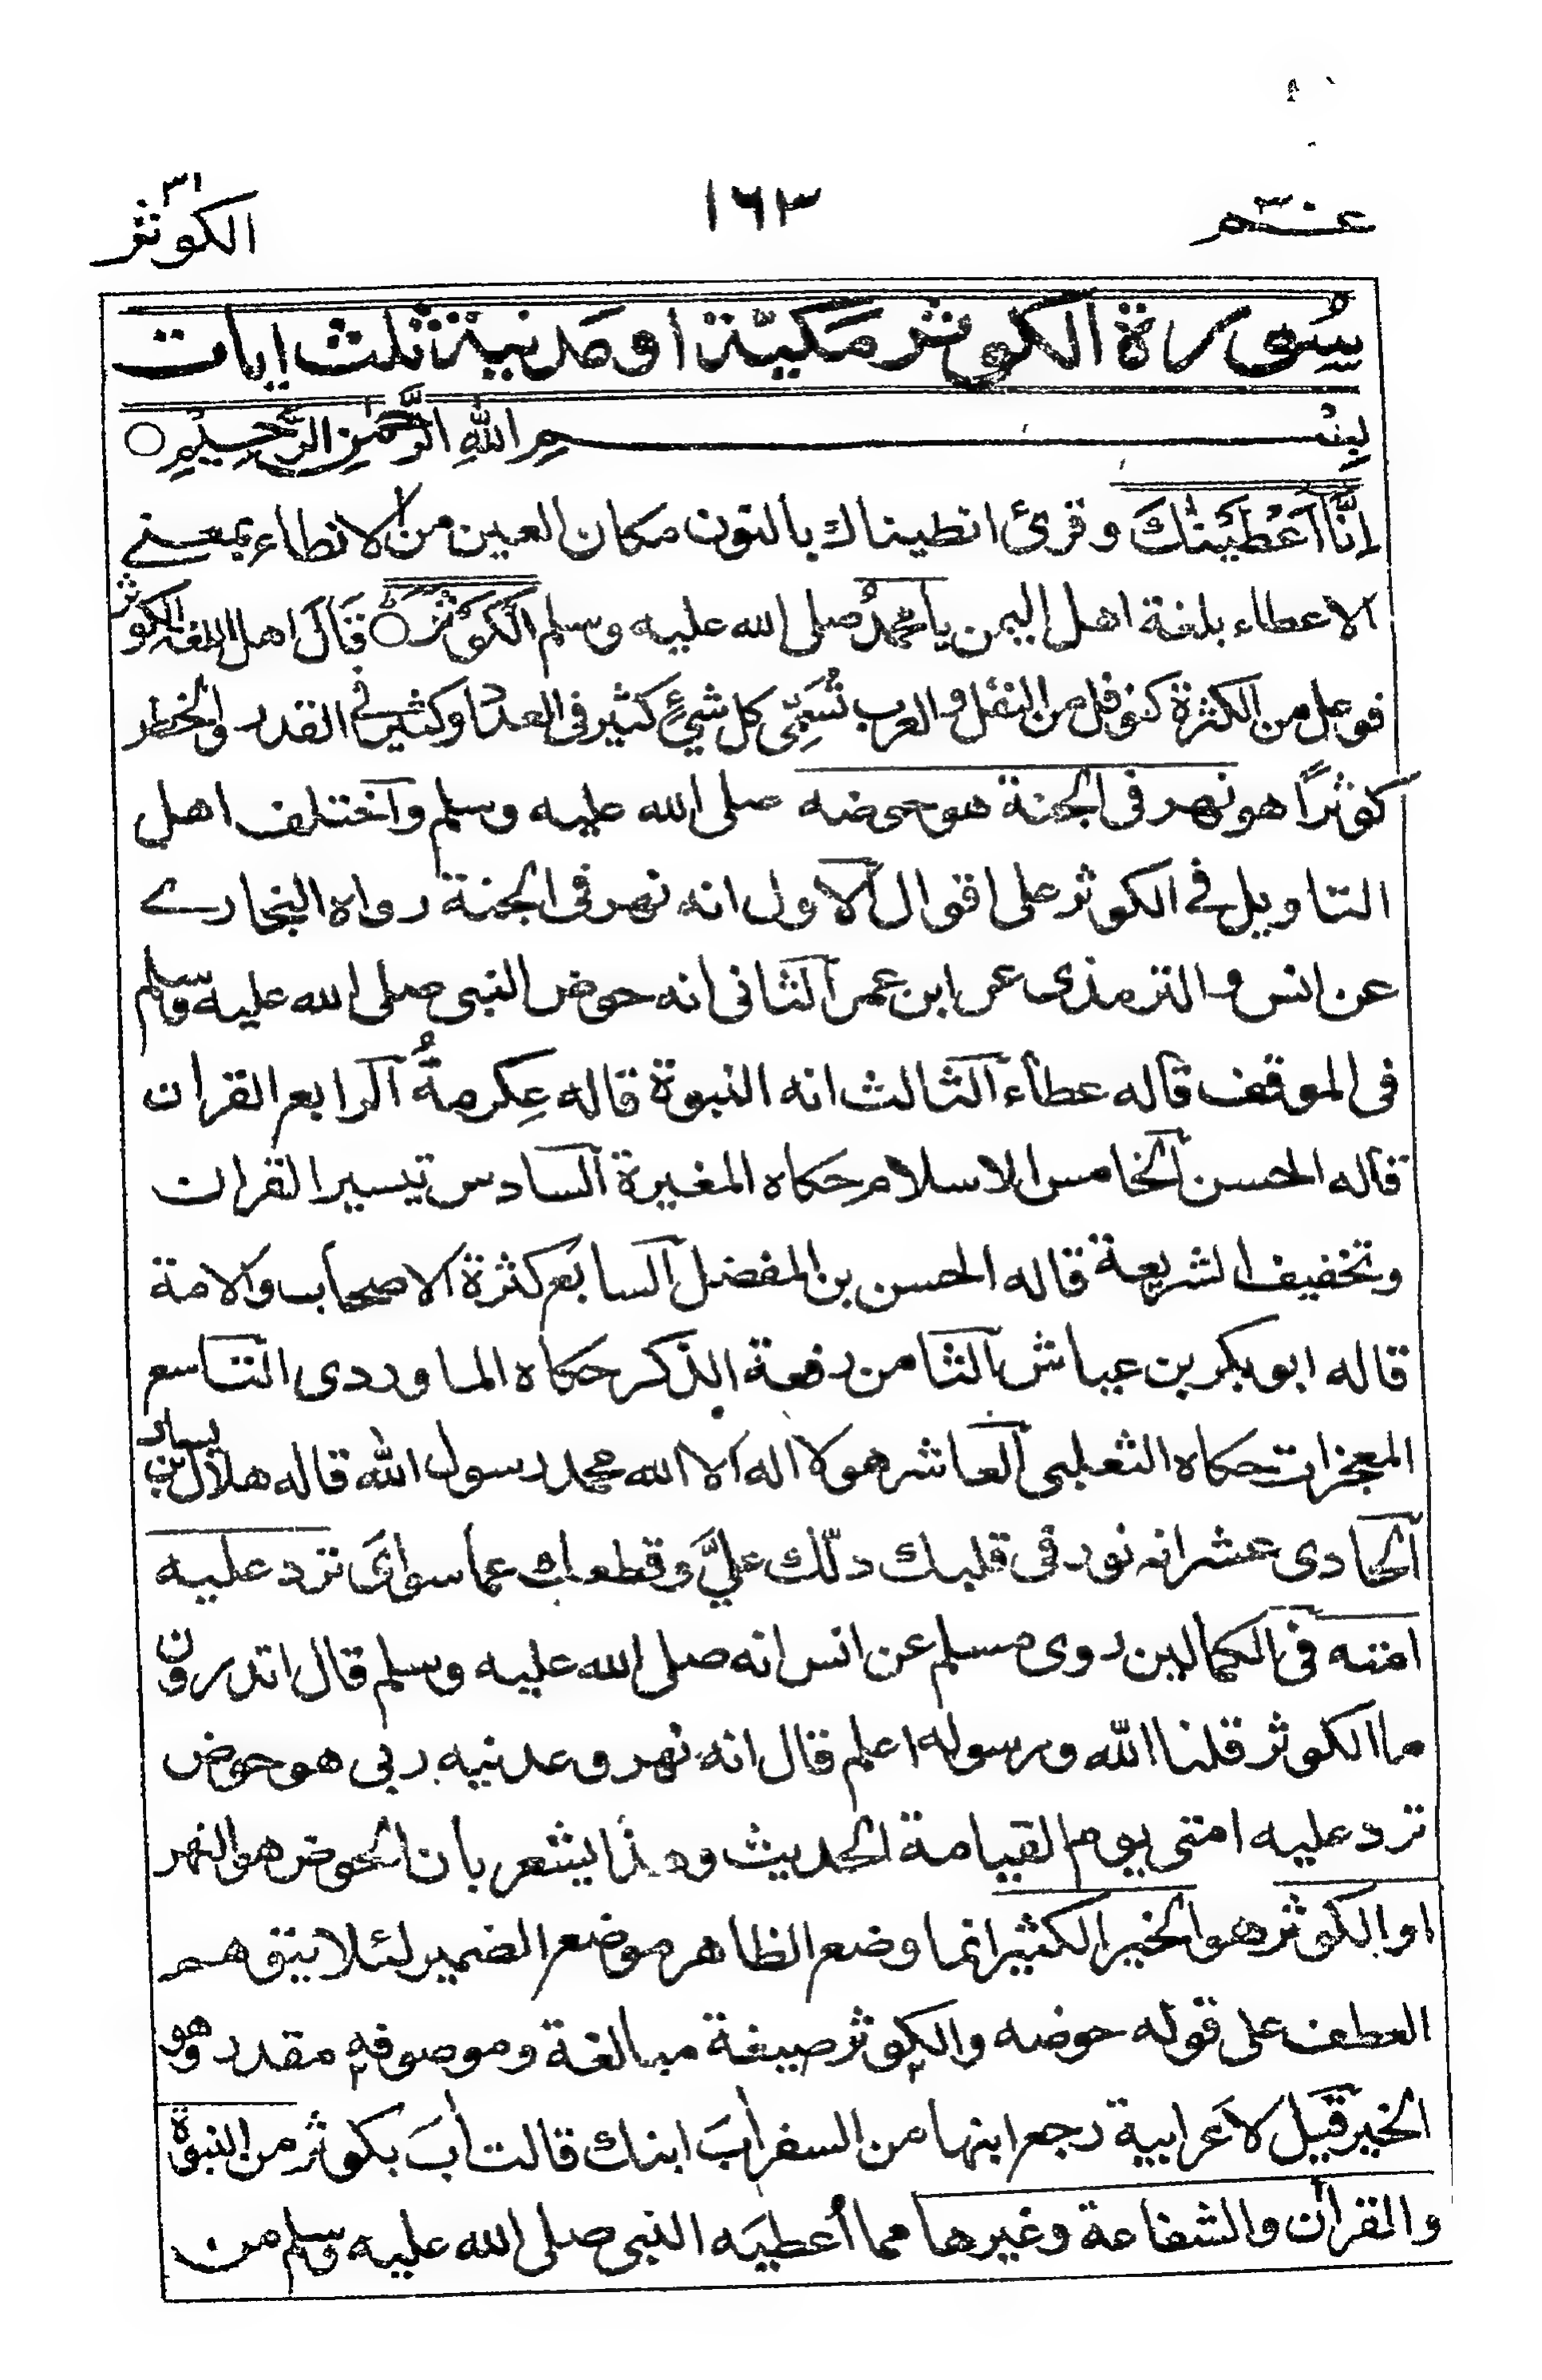 عـــم ٣٠
١٦٣
الكوثر
٣١
سُورة الكوثر مكيّة او مدنية ثلث ايات
بِسْـــــــــمِ اللهِ الرَّحْمٰنِ الرَّحِيْمِ ○
اِنَّآ اَعْطَيْنٰكَ وقرئ انطيناك بالنون مكان العين من الانطاء بمعنى
الاعطاء بلغة اهل اليمن يا محمدُ صلى الله عليه وسلم الْكَوْثَرَ ○ قَالَ اهل اللغة الكوثر
فوعل من الكثرة كنوفل من النفل والعرب تُسَمِّى كل شيءٍ كثير فى العدد او كثير فى القدر والخطر
كوثراً هو نهر فى الجنة هو حوضه صلى الله عليه وسلم واختلف اهل
التاويل فى الكوثر على اقوال الاول انه نهر فى الجنة رواه البخارے
عن انس والترمذى عن ابن عمر الثانى انه حوض النبى صلى الله عليه وسلم
فى الموقف قاله عطاء الثالث انه النبوة قاله عِكرمةُ الرابع القران
قاله الحسن الخامس الاسلام حكاه المغيرة السادس تيسير القران
وتخفيف الشريعة قاله الحسن بن المفضل السابع كثرة الاصحاب والامة
قاله ابو بكر بن عياش الثامن رفعة الذكر حكاه الماوردى التاسع
المعجزات حكاه الثعلبى العاشر هو لا اله الا الله محمد رسول الله قاله هلال بن يساد
الحادى عشر انه نور فى قلبك دلّك عليَّ وقطعك عما سواىَ ترد عليه
امته فى الكمالين روى مسلم عن انس انه صلى الله عليه وسلم قال اتدرون
ما الكوثر قلنا الله ورسوله اعلم قال انه نهر وعدنيه ربى هو حوض
ترد عليه امتى يوم القيامة الحديث وهذا يشعر بان الحوض هو النهر
او الكوثر هو الخير الكثير انما وضع الظاهر موضع الضمير لئلا يتوهم
العطف على قوله حوضه والكوثر صيغة مبالغة وموصوفه مقدر وهو
الخير قيل لاعرابية رجع ابنها من السفر أبَ ابنك قالت أبَ بكوثر من النبوة
والقرأن والشفاعة وغيرها مما أعطيَه النبى صلى الله عليه وسلم من